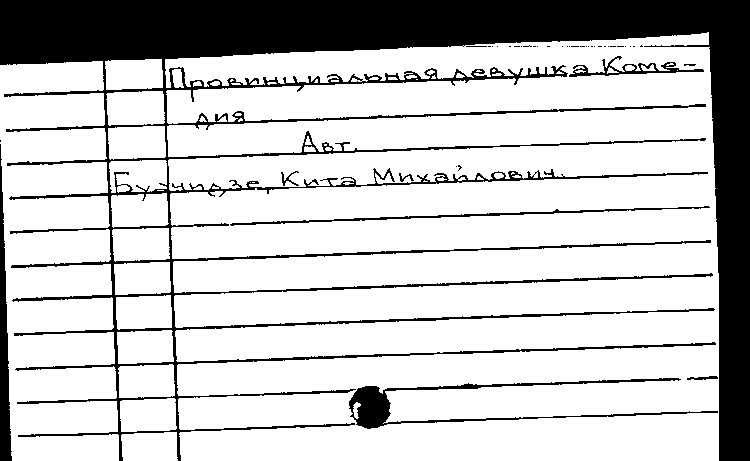 Провинциальная девушка Коме-
дия
Авт.
Буачидзе, Кита Михайлович.